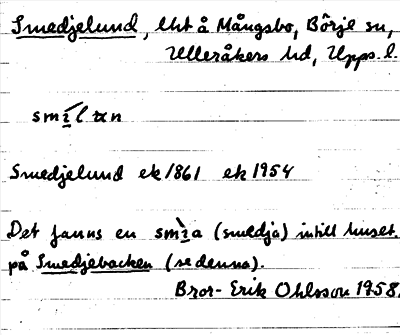 Smedjelund, lht å Mångsbo, Börje sn,
Ulleråkers hd, Upps. l.
Smedjelund ek 1861 ek 1954
Det fanns en smìa (smedja) intill huset.
på Smedjebacken (se denna).
Bror-Erik Ohlsson 1958.